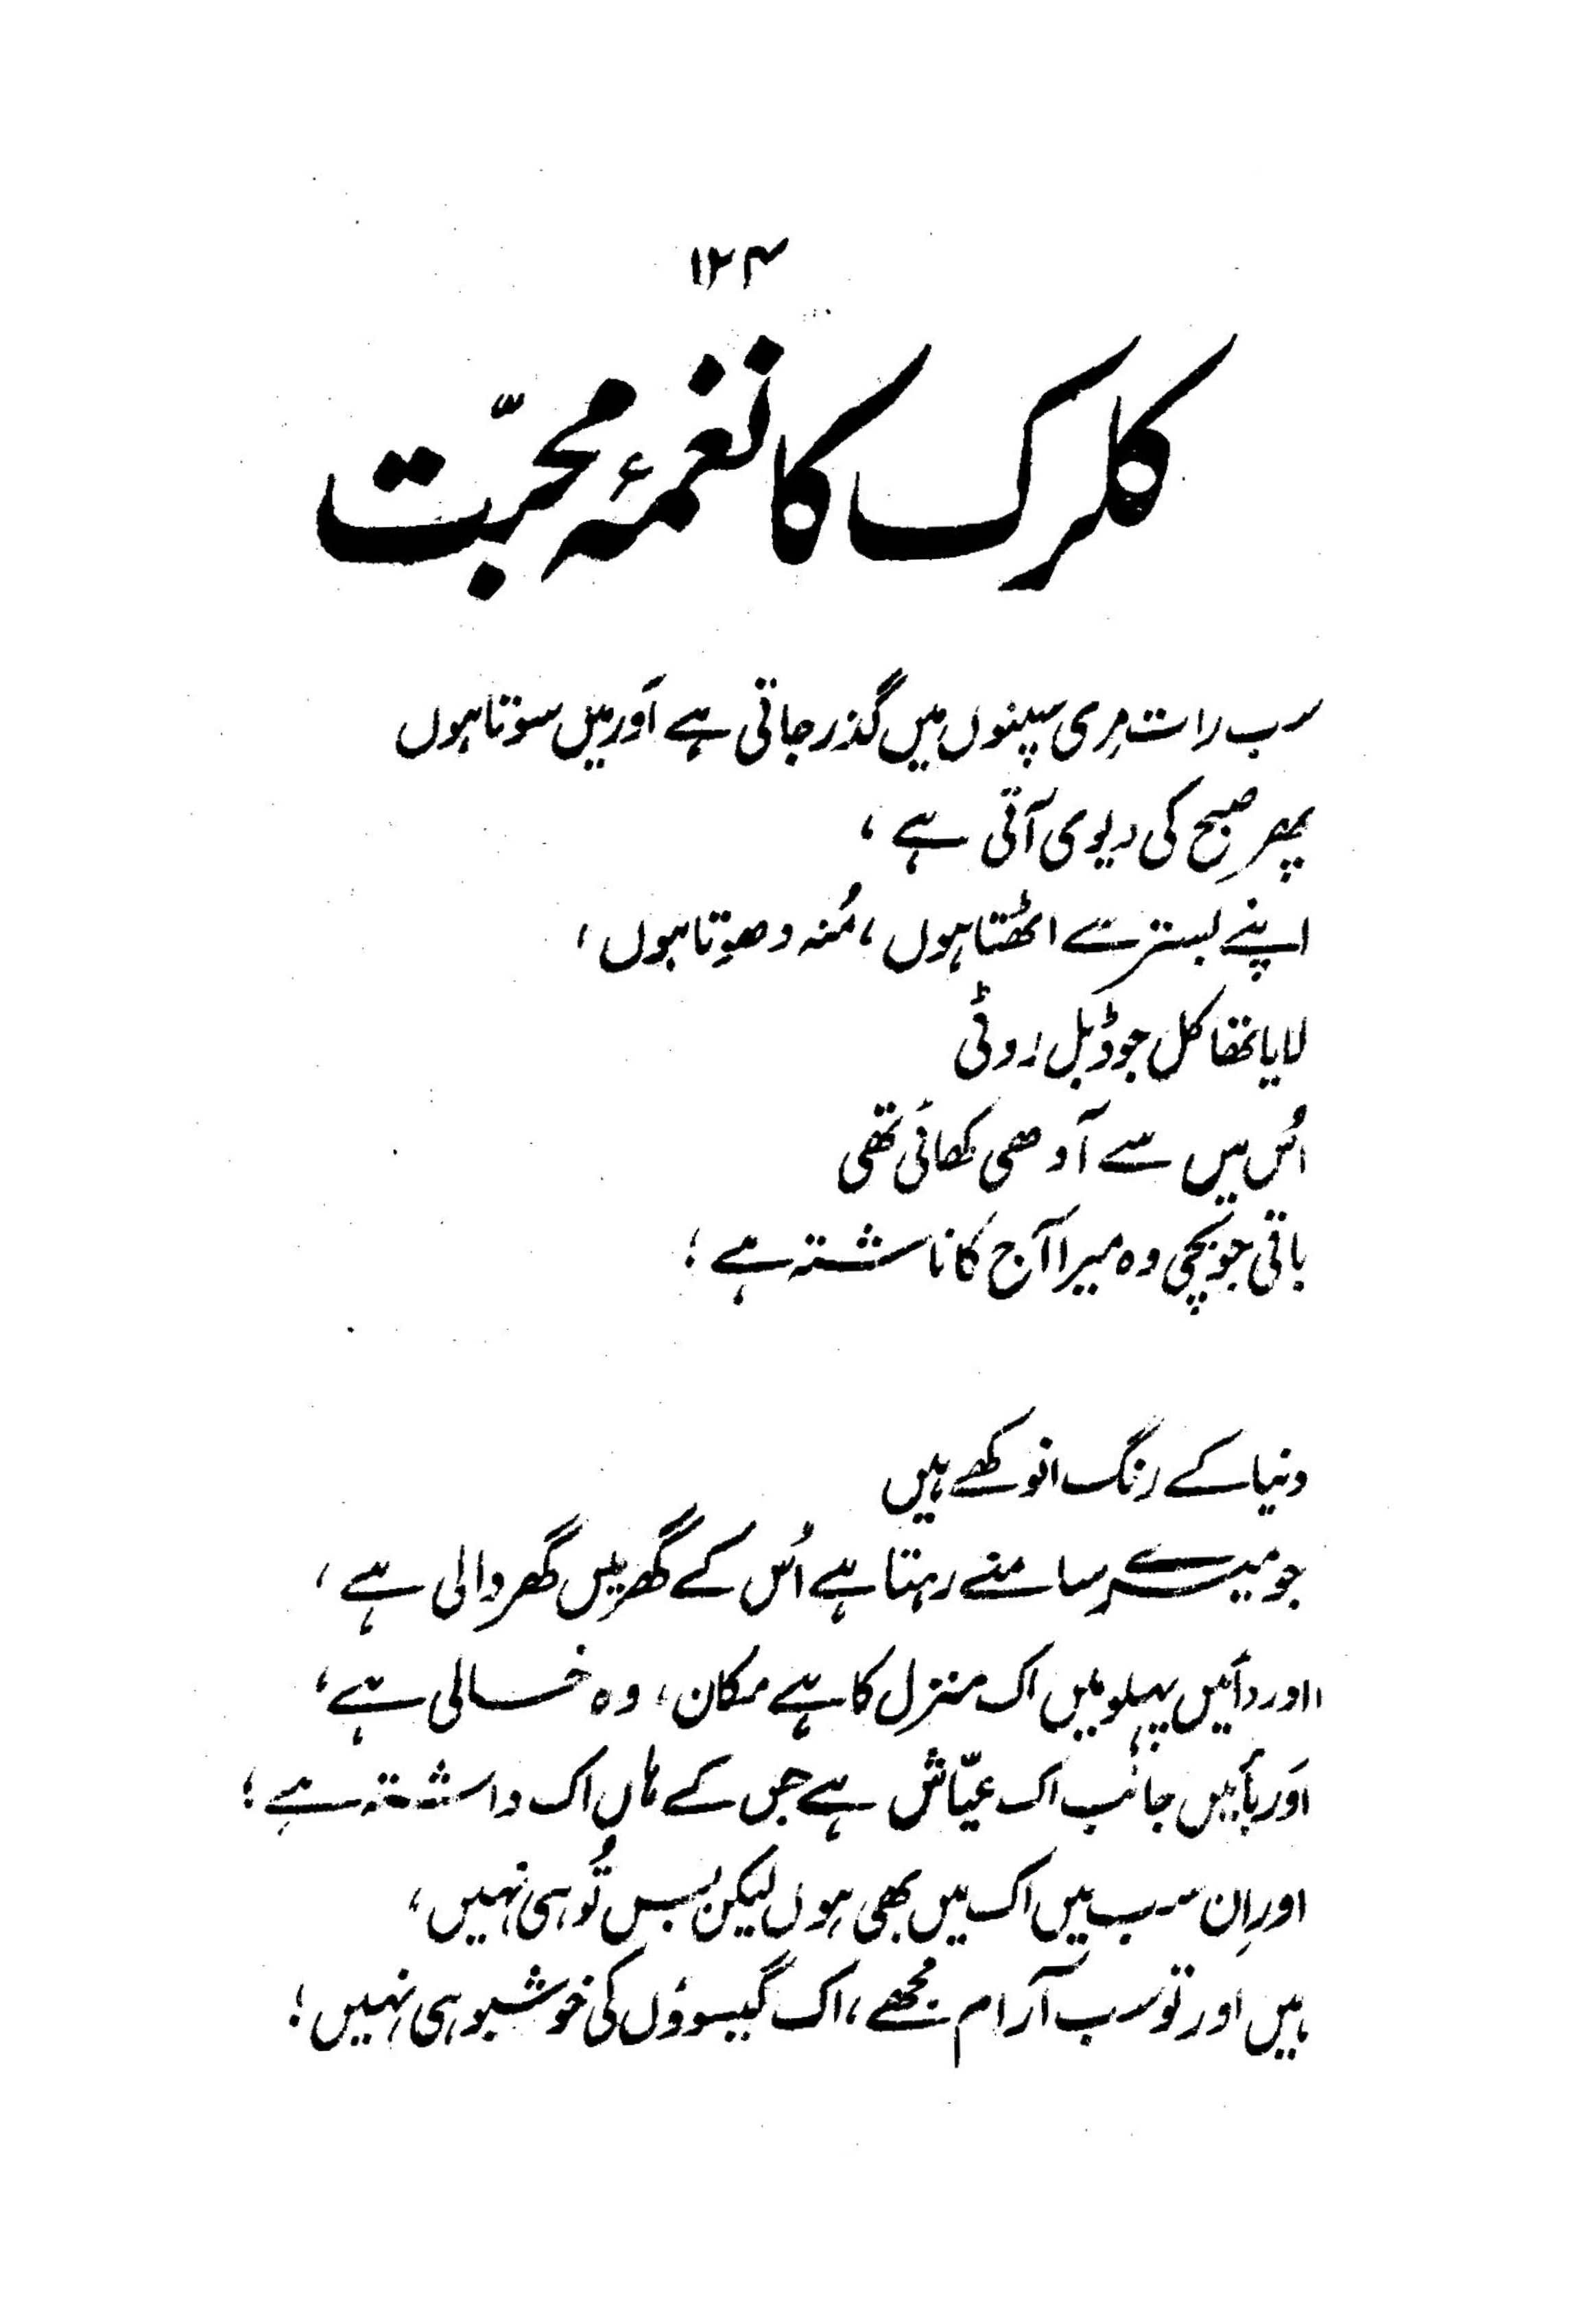 ۱۲۴
کلرک کا نغمۂ محبّت
سب رات مِری سپنوں میں گذر جاتی ہے اَور میں سوتا ہوں
پھر صبح کی دیوی آتی ہے،
اپنے بستر سے اٹھتا ہوں، مُنہ دھوتا ہوں،
لایا تھا کل جو ڈبل روٹی
اُس میں سے آدھی کھائی تھی
باقی جو بچی وہ میرا آج کا ناشتہ ہے؛
دنیا کے رنگ انوکھے ہیں
جو میرے سامنے رہتا ہے اُس کے گھر میں گھر والی ہے،
اور دائیں پہلو میں اک منزل کا ہے مکان، وہ خالی ہے،
اَور بائیں جانب اک عیّاش ہے جس کے ہاں اک داشتہ ہے؛
اور اِن سب میں اک میں بھی ہوں لیکن بس تُو ہی نہیں،
ہیں اور تو سب آرام مجھے، اک گیسوؤں کی خوشبو ہی نہیں؛